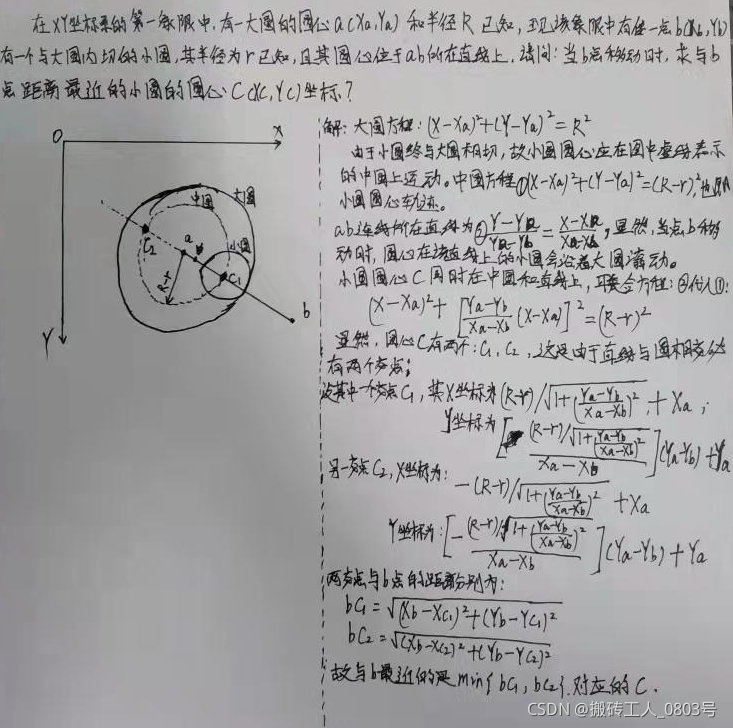 在XY坐标系的第一象限中，有一大圆的圆心a(Xa,Ya)和半径R已知，现该象限中有任一点b(Xb,Yb)
有一个与大圆内切的小圆，其半径为r已知，且其圆心位于ab的在直线上，请问：当b点移动时，求与b
点距离最近的小圆的圆心C(XC,YC)坐标？
O
X
Y
中圆
大圆
小圆
C₂
a
C₁
R-r
b
解：大圆方程：(X-Xa)²+(Y-Ya)²=R²
由于小圆终与大圆相切，故小圆圆心应在图中虚线表示
的中圆上运动。中圆方程①(X-Xa)²+(Y-Ya)²=(R-r)²,也是
小圆圆心轨迹。
ab连线所在直线为②(Y-Ya)/(Ya-Yb)=(X-Xa)/(Xa-Xb),显然,当点b移
动时，圆心在该直线上的小圆会沿着大圆滚动。
小圆圆心C同时在中圆和直线上，可联合方程：②代入①：
(X-Xa)²+[(Ya-Yb)/(Xa-Xb)(X-Xa)]²=(R-r)²
显然，圆心C有两个：C₁,C₂，这是由于直线与圆相交
有两个交点；
设其中一个交点C₁，其X坐标为(R-r)/√(1+((Ya-Yb)/(Xa-Xb))²)+Xa；
Y坐标为[(R-r)/√(1+((Ya-Yb)/(Xa-Xb))²)/(Xa-Xb)](Ya-Yb)+Ya
另一交点C₂,X坐标为：-(R-r)/√(1+((Ya-Yb)/(Xa-Xb))²)+Xa
Y坐标为：[-(R-r)/√(1+((Ya-Yb)/(Xa-Xb))²)/(Xa-Xb)](Ya-Yb)+Ya
两交点与b点的距离分别为：
bC₁=√((Xb-XC₁)²+(Yb-YC₁)²)
bC₂=√((Xb-XC₂)²+(Yb-YC₂)²)
故与b最近的是min{bC₁,bC₂}对应的C.
CSDN @搬砖工人_0803号